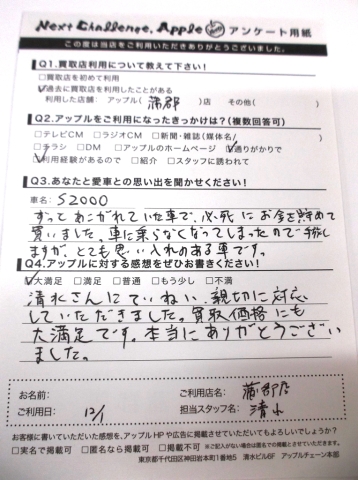 Next Challenge, Apple アンケート用紙
この度は当店をご利用いただきありがとうございました。
Q1.買取店利用について教えて下さい!
□買取店を初めて利用
☑過去に買取店を利用したことがある
利用した店舗: アップル( 蒲郡 )店 その他( )
Q2.アップルをご利用になったきっかけは?(複数回答可)
□テレビCM □ラジオCM □新聞・雑誌(媒体名/ )
□チラシ □DM □アップルのホームページ ☑通りがかりで
☑利用経験があるので □紹介 □スタッフに誘われて
Q3.あなたと愛車との思い出を聞かせください!
車名: S2000
ずっとあこがれていた車で、必死にお金を貯めて
買いました。車に乗らなくなってしまったので手放し
ますが、とても思い入れのある車です。
Q4.アップルに対する感想をぜひお書きください!
☑大満足 □満足 □普通 □もう少し □不満
清水さんにていねい、親切に対応
していただきました。買取価格にも
大満足です。本当にありがとうござい
ました。
お名前: ご利用店名: 蒲郡店
ご利用日: 12/1 担当スタッフ名: 清水
お客様に書いていただいた感想を、アップルHPや広告に掲載させていただいてもよろしいでしょうか?
□実名で掲載可 □匿名なら掲載可 □掲載不可 ※ご記入がない場合は匿名での掲載とさせていただきます。
東京都千代田区神田岩本町1番地5 清水ビル6F アップルチェーン本部